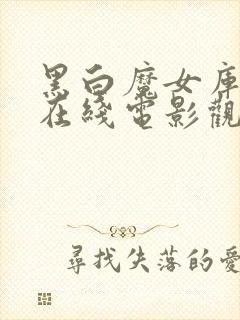 黑白魔女庫
在綫電影觀
尋找失落的愛